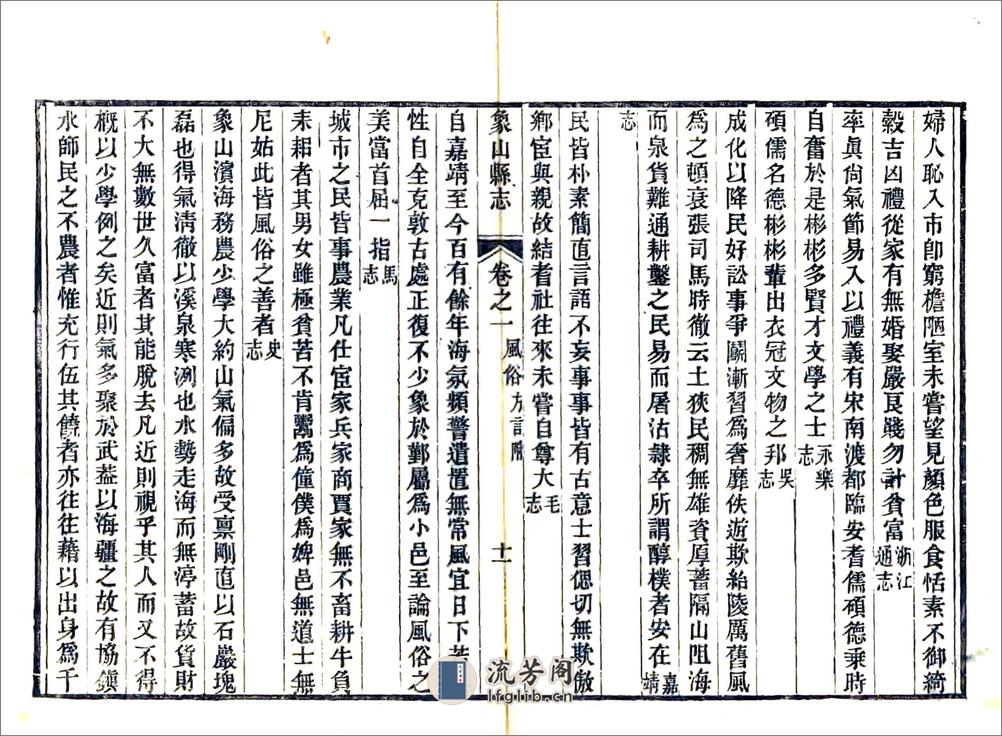 婦人恥入市卽窮檐陋室未嘗望見顏色服食恬素不御綺
縠吉凶禮從家有無婚娶嚴良賤勿計貧富浙江通志
率眞尙氣節易入以禮義有宋南渡都臨安耆儒碩德乘時
自奮於是彬彬多賢才文學之士永樂志
碩儒名德彬彬輩出衣冠文物之邦吳志
成化以降民好訟事爭鬬漸習爲奢靡佚遊欺紿陵厲舊風
爲之頓衰張司馬時徹云土狹民稠無雄資厚蓄隔山阻海
而泉貨難通耕鑿之民易而屠沽隸卒所謂醇樸者安在嘉靖
志
民皆朴素簡直言語不妄事事皆有古意士習偲切無欺傲
鄕宦與親故結耆社往來未嘗自尊大毛志
象山縣志 卷之一 風俗 方言附 十一
自嘉靖至今百有餘年海氛頻警遣置無常風宜日下若
性自全克敦古處正復不少象於鄞屬爲小邑至論風俗之
美當首屈一指馬志
城市之民皆事農業凡仕宦家兵家商賈家無不畜耕牛負
耒耜者其男女雖極貧苦不肯鬻爲僮僕爲婢邑無道士無
尼姑此皆風俗之善者史志
象山濱海務農少學大約山氣偏多故受禀剛直以石巖塊
磊也得氣淸徹以溪泉寒洌也水勢走海而無渟蓄故貨財
不大無數世久富者其能脫去凡近則視乎其人而又不得
槪以少學例之矣近則氣多聚於武葢以海疆之故有協鎭
水師民之不農者惟充行伍其饒者亦往往藉以出身爲千
流芳阁
lfglib.cn